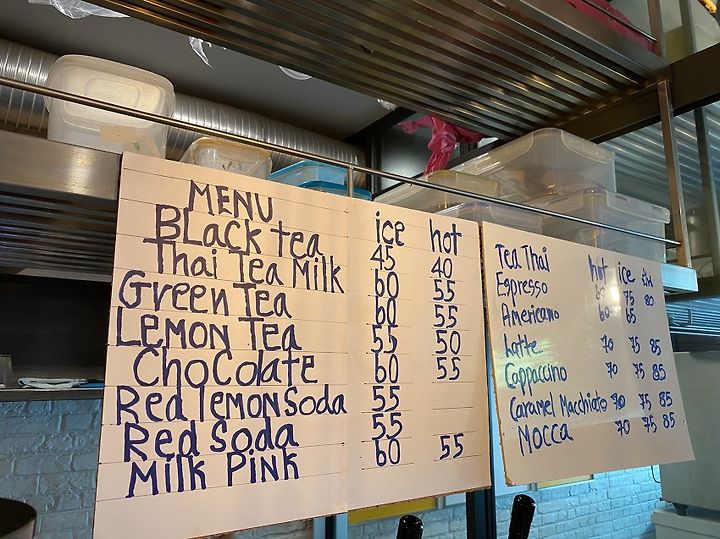 MENU ice hot
BLack tea 45 40
Thai Tea Milk 60 55
Green Tea 60 55
LEMON Tea 55 50
ChoColate 60 55
Red lemon Soda 55
Red Soda 55
Milk Pink 60 55
Tea Thai hot ice
Espresso 75 80
Americano 60 65
Latte 70 75 85
Cappuccino 70 75 85
Caramel Macchiato 70 75 85
MOCCA 70 75 85